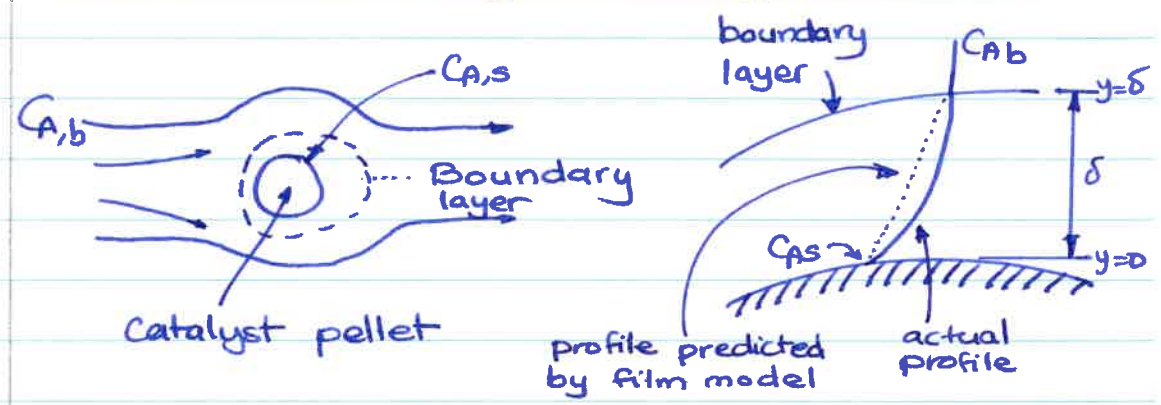 C_A,b
C_A,s
Boundary
layer
Catalyst pellet
boundary
layer
C_Ab
y=δ
δ
C_AS
y=0
profile predicted
by film model
actual
profile